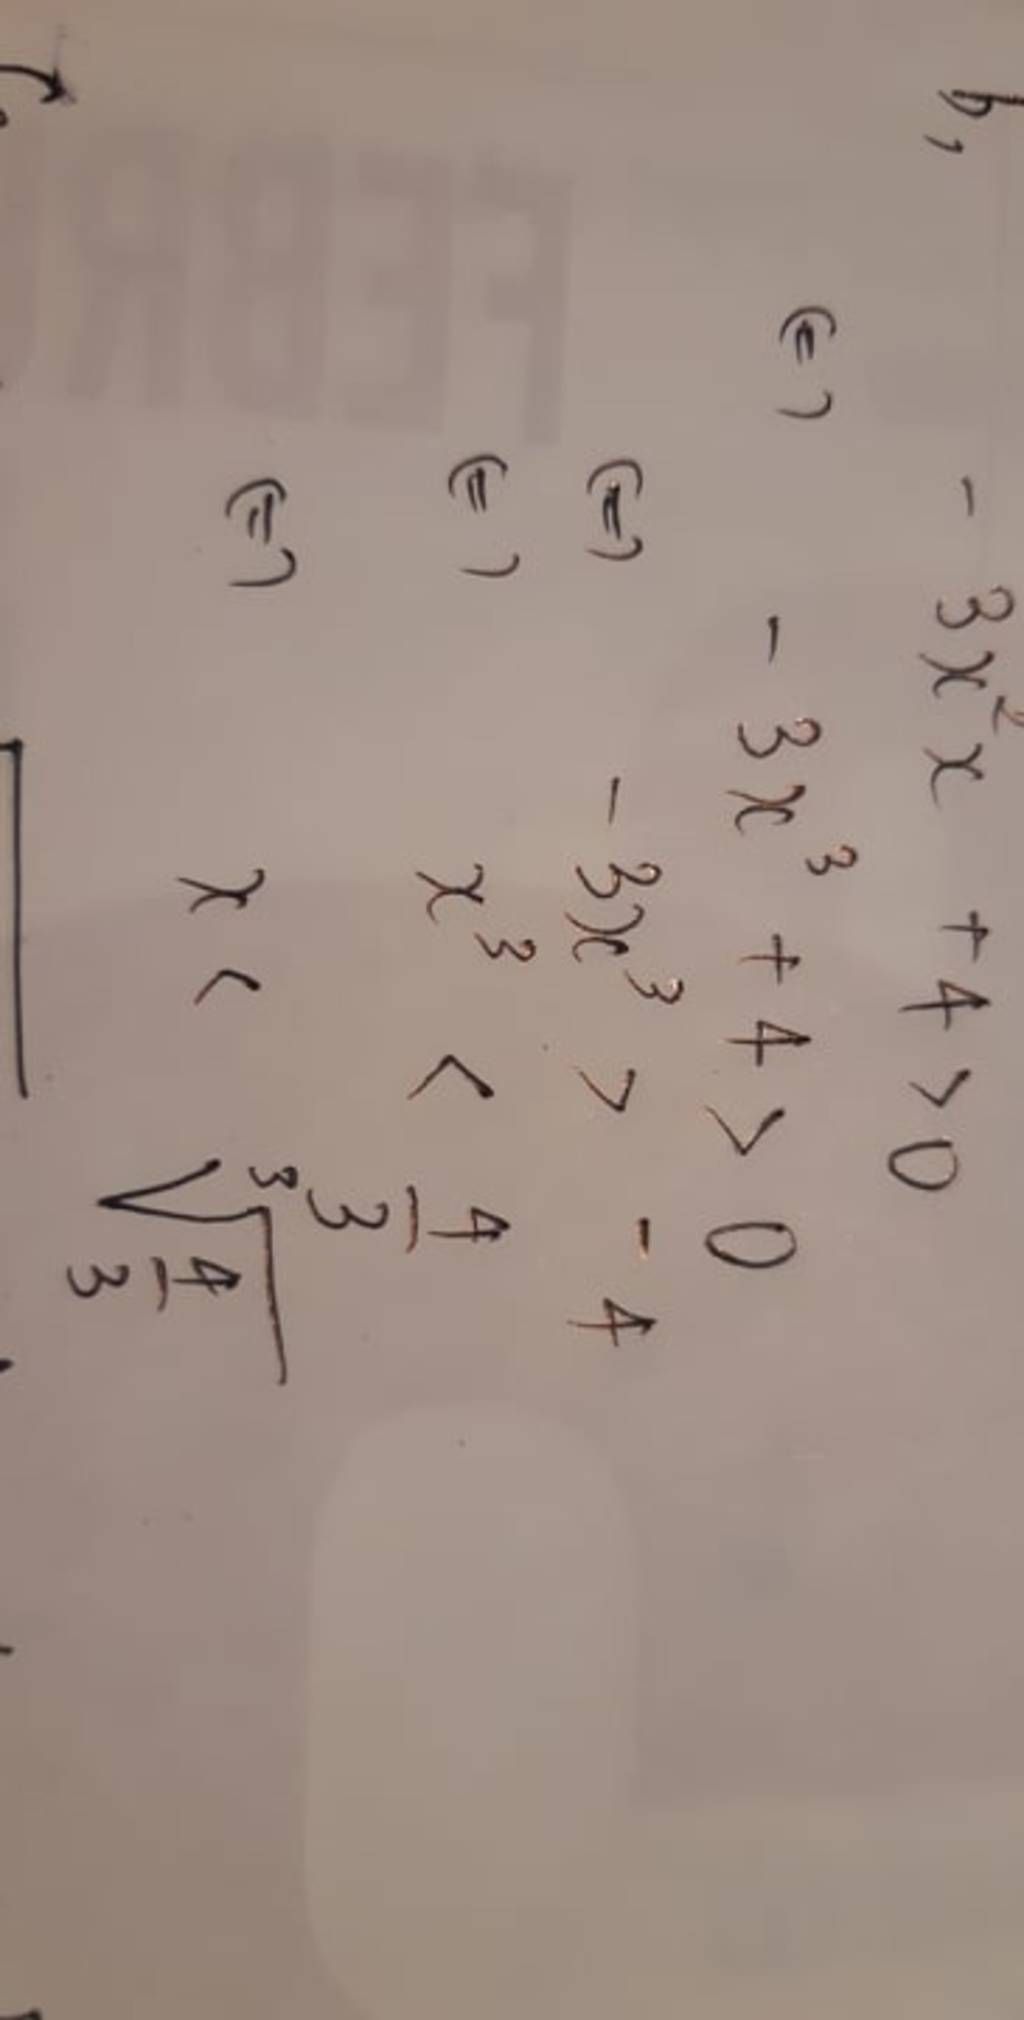 b, - 3x²x + 4 > 0
(=) - 3x³ + 4 > 0
(=) - 3x³ > - 4
(=) x³ < 4/3
(=) x < ³√(4/3)
FEBR